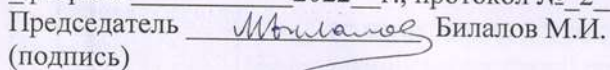 2022 г., протокол № 2
Председатель Билалов М.И.
(подпись)